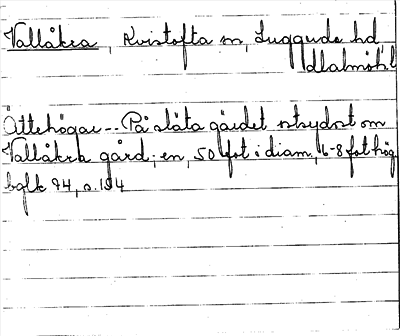 Vallåkra, Kvistofta sn, Luggude hd
Malmöhl
Ättehögar -- På släta gärdet ostsydost om
Vallåkra gård; en, 50 fot i diam, 6-8 fot hög
bglk 94, s.194